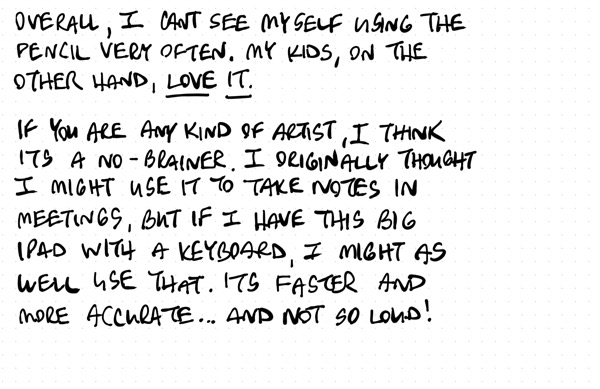 OVERALL, I CANT SEE MYSELF USING THE
PENCIL VERY OFTEN. MY KIDS, ON THE
OTHER HAND, LOVE IT.
IF YOU ARE ANY KIND OF ARTIST, I THINK
ITS A NO-BRAINER. I ORIGINALLY THOUGHT
I MIGHT USE IT TO TAKE NOTES IN
MEETINGS, BUT IF I HAVE THIS BIG
IPAD WITH A KEYBOARD, I MIGHT AS
WELL USE THAT. ITS FASTER AND
MORE ACCURATE... AND NOT SO LOUD!